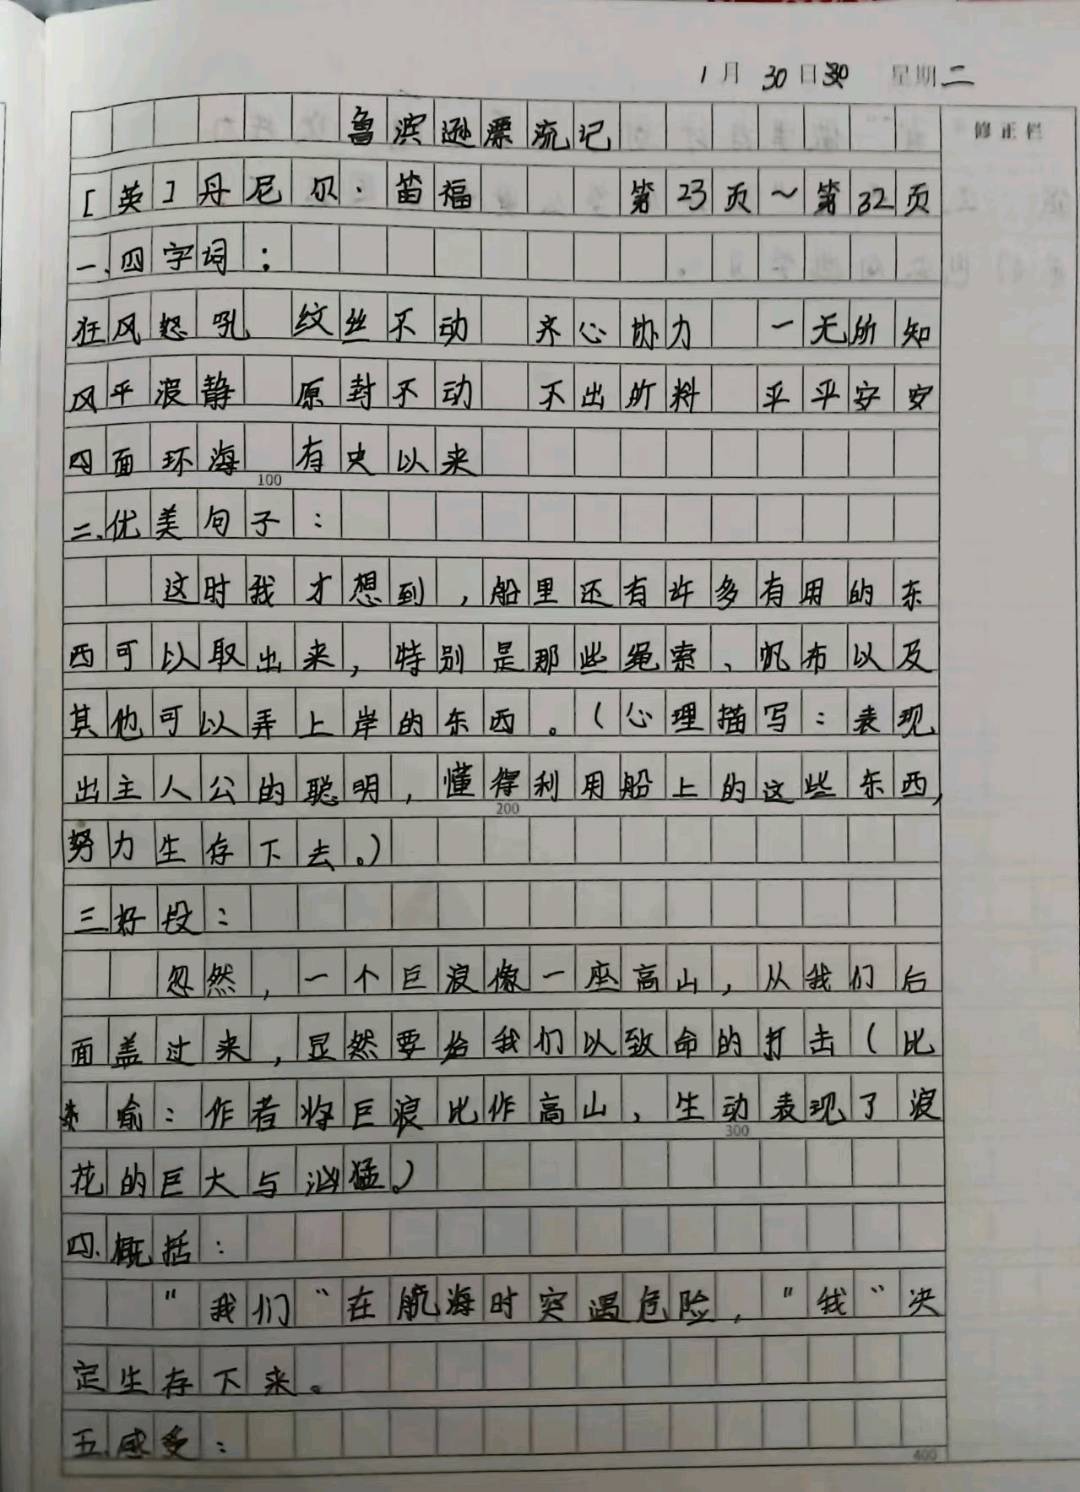 1月30日 星期二
修正栏
鲁滨逊漂流记
[英]丹尼尔·笛福 第23页～第32页
一.四字词：
狂风怒吼 纹丝不动 齐心协力 一无所知
风平浪静 原封不动 不出所料 平平安安
四面环海 有史以来
100
二.优美句子：
这时我才想到，船里还有许多有用的东
西可以取出来，特别是那些绳索、帆布以及
其他可以弄上岸的东西。（心理描写：表现
出主人公的聪明，懂得利用船上的这些东西，
200
努力生存下去。）
三好段：
忽然，一个巨浪像一座高山，从我们后
面盖过来，显然要给我们以致命的打击（比
喻：作者将巨浪比作高山，生动表现了浪
300
花的巨大与汹猛。）
四.概括：
"我们"在航海时突遇危险，"我"决
定生存下来。
五.感受：
400